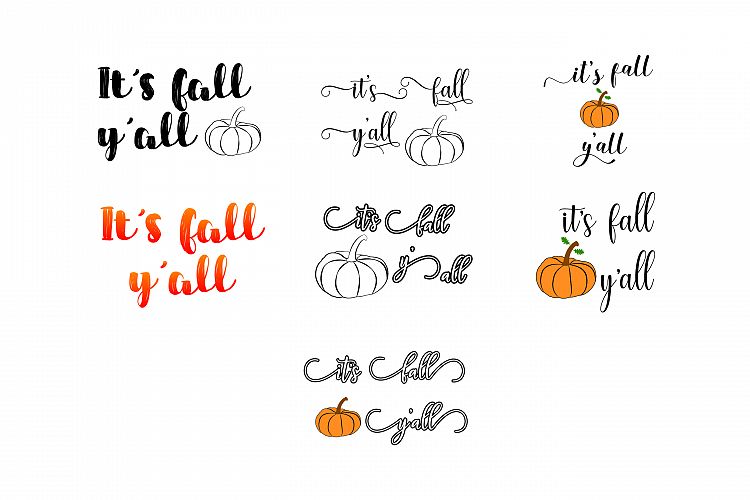 It's fall
y'all
it's fall
y'all
it's fall
y'all
It's fall
y'all
it's fall
y'all
it's fall
y'all
it's fall
y'all